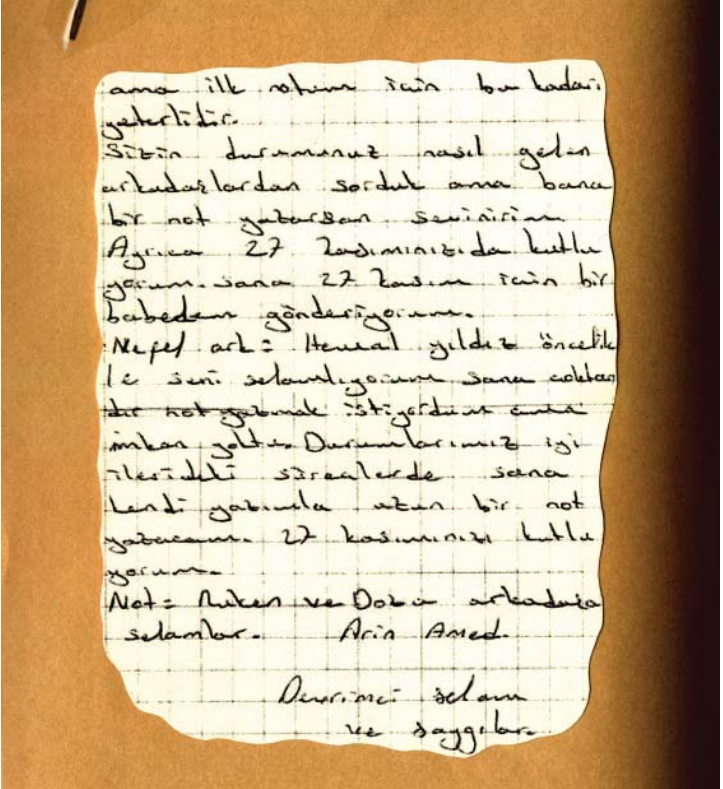 ama ilk notum için bu kadarı
yeterlidir.
Sizin durumunuz nasıl gelen
arkadaşlardan sorduk ama bana
bir not yazarsan sevinirim
Ayrıca 27 kasımınızıda kutlu
yorum. sana 27 kasım için bir
babedem gönderiyorum.
Nefel ark = Heval yıldız öncelik
le seni selamlıyorum sana çoktan
dır not yazmak istiyordum ama
imkan yoktu. Durumlarımız iyi
ilerideki süreçlerde sana
kendi yazımla uzun bir not
yazacam. 27 kasımınızı kutlu
yorum.
Not = Ruken ve Doza arkadaşa
selamlar. Arin Amed.
Devrimci selam
ve saygılar.